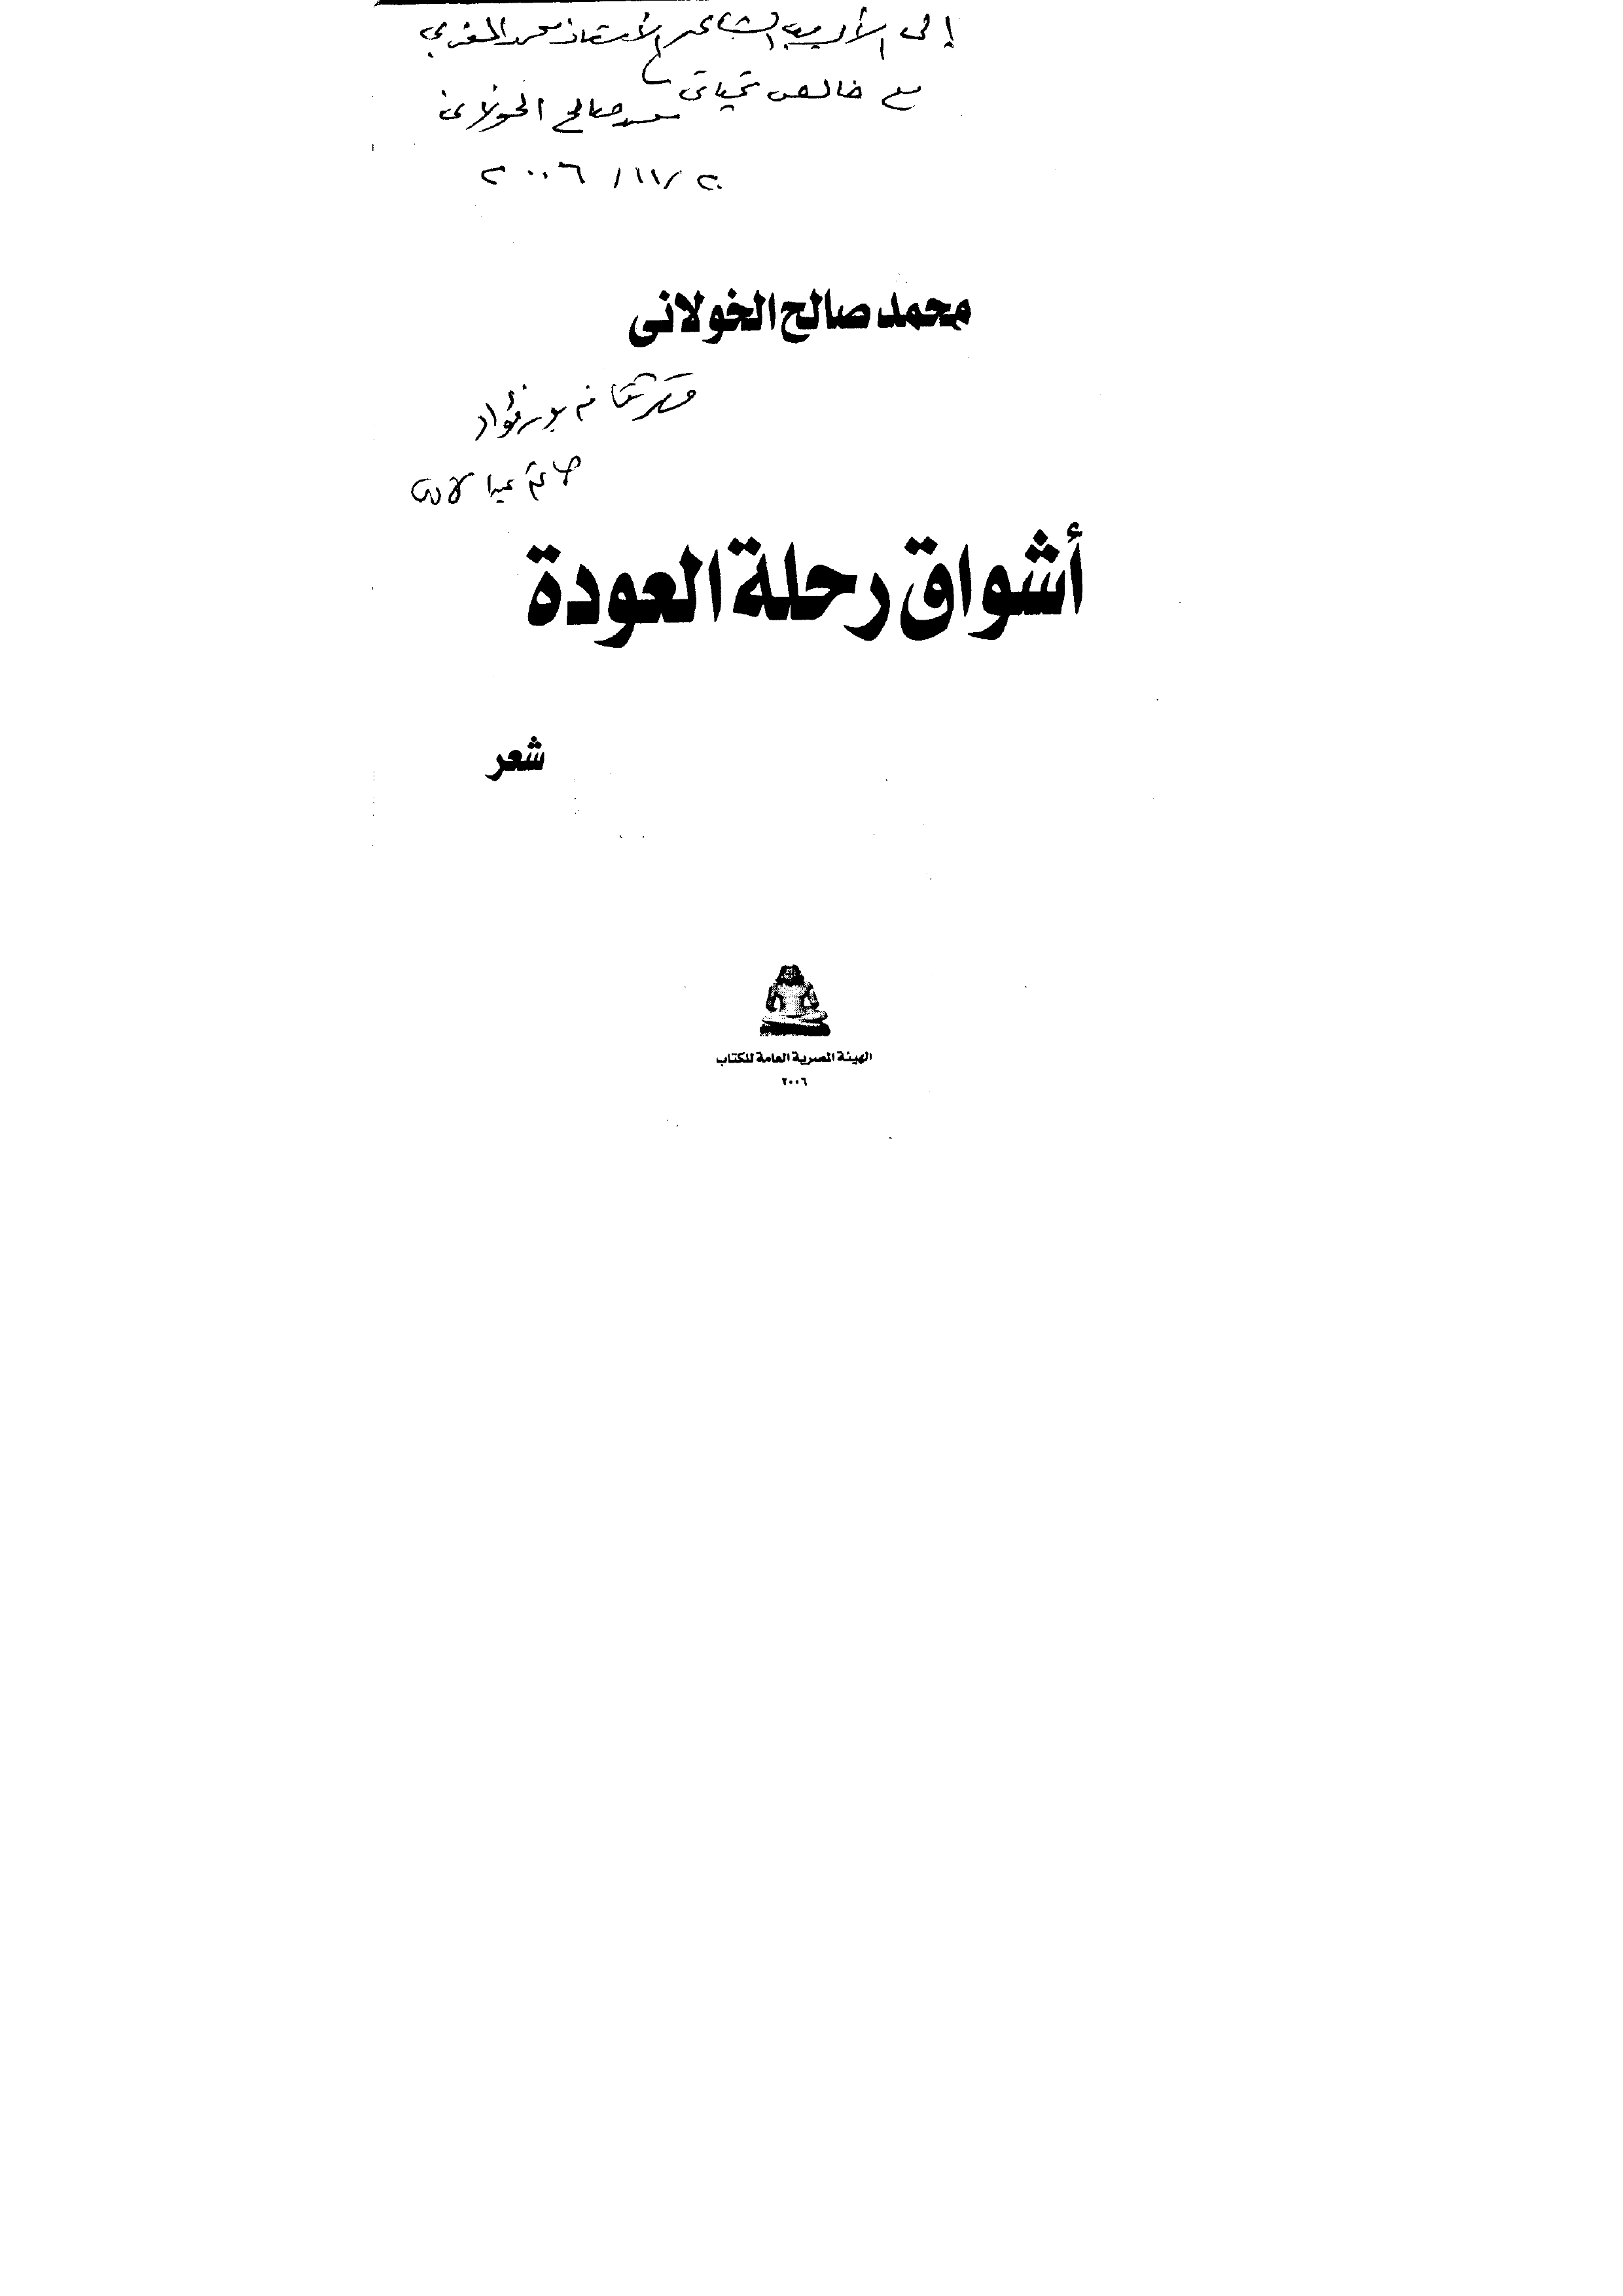 إلى الأديب الشاعر الأستاذ محمد المغربي
مع خالص تحياتى
محمد صالح الخولانى
٢٠ /١١/ ٢٠٠٦
محمد صالح الخولانى
قصر ثقافة بورفؤاد
أشواق رحلة العودة
شعر
الهيئة المصرية العامة للكتاب
٢٠٠٦